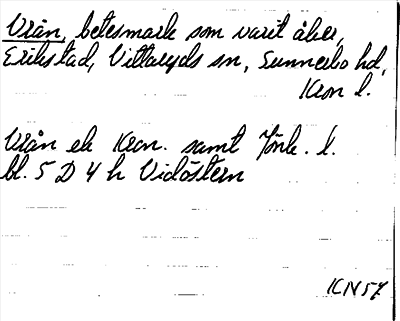 Vrån, betesmark som varit åker,
Erikstad, Vittaryds sn, Sunnerbo hd,
Kron l.
Vrån ek Kron. samt Jönk. l.
bl. 5 D 4 h Vidöstern
KN57